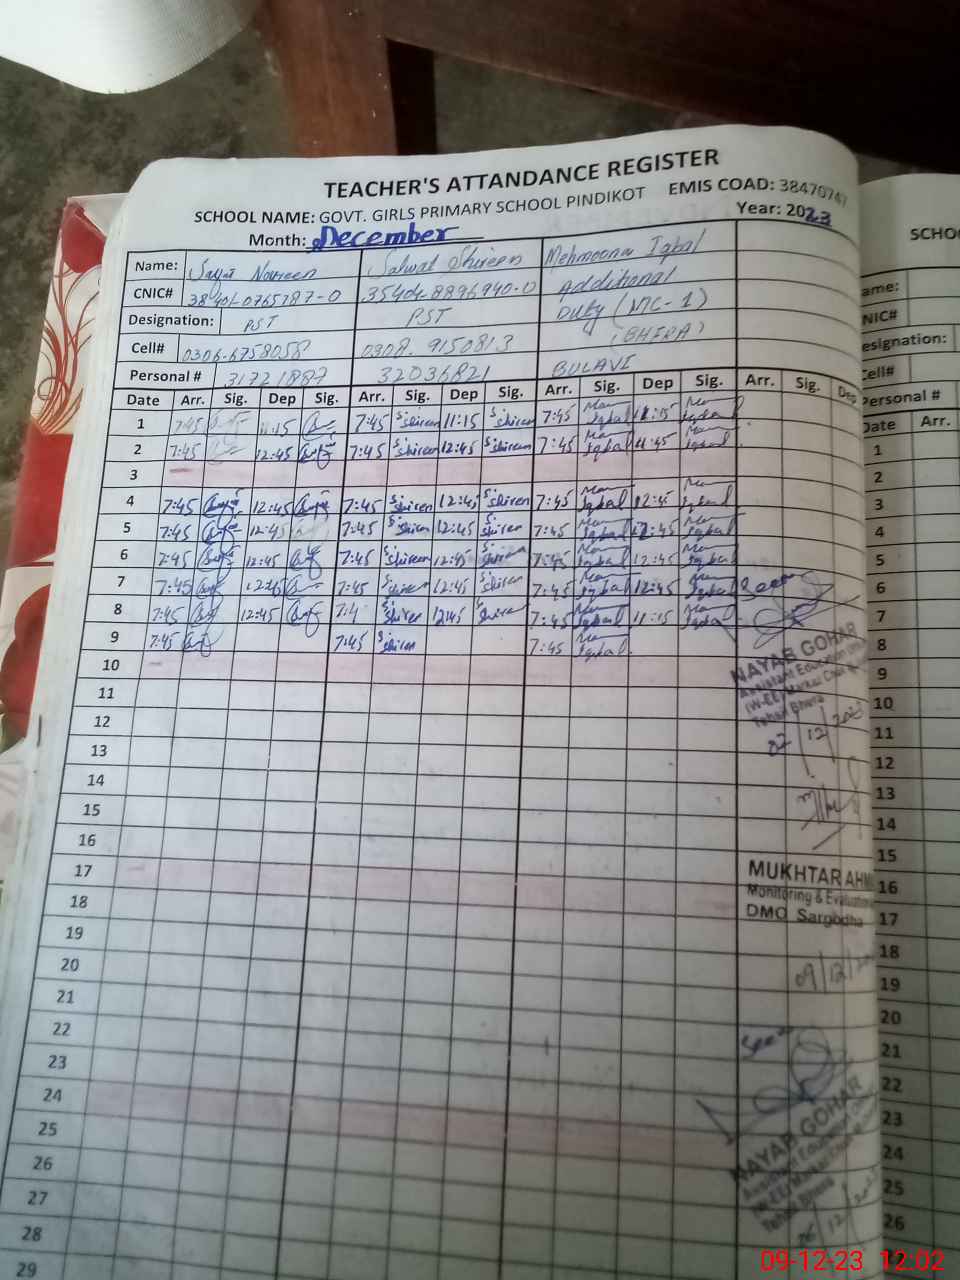 TEACHER'S ATTANDANCE REGISTER
SCHOOL NAME: GOVT. GIRLS PRIMARY SCHOOL PINDIKOT EMIS COAD: 38470747
Month: December Year: 2023
Name: Noureen Salwat Shireen Mehmoona Iqbal
CNIC# 38401-0765787-0 35404-8896940-0 Additional
Designation: PST PST Duty (NTC-1)
Cell# 0306-6758058 0308. 9150813 (BHERA)
Personal # 31721887 32036821 BULAVI
Date Arr. Sig. Dep Sig. Arr. Sig. Dep Sig. Arr. Sig. Dep Sig. Arr. Sig. Dep
1 7:45 11:15 7:45 Shireen 11:15 Shireen 7:45 Iqbal 11:15 Iqbal
2 7:45 12:45 7:45 Shireen 12:45 Shireen 7:45 Iqbal 11:45 Iqbal
3
4 7:45 12:45 7:45 Shiren 12:45 Shiren 7:45 Iqbal 12:45 Iqbal
5 7:45 12:45 7:45 Shiren 12:45 Shiren 7:45 Iqbal 12:45 Iqbal
6 7:45 12:45 7:45 Shireen 12:45 Shireen 7:45 Iqbal 12:45 Iqbal
7 7:45 12:45 7:45 Shiren 12:45 Shiren 7:45 Iqbal 12:45 Iqbal Seen
8 7:45 12:45 7:4 Shiren 12:45 Shiren 7:45 Iqbal 11:15 Iqbal
9 7:45 7:45 Shiren 7:45 Iqbal
10
11
12
13
14
15
16
17
18
19
20
21
22
23
24
25
26
27
28
29
NAYAB GOHAR
Assistant Education
(W-EE) Markaz
Tehsil Bhera
07/12/2023
MUKHTAR AHM
Monitoring & Evaluation
DMO Sargodha
09/12/20
Seen
NAYAB GOHAR
Assistant Education
(W-EE) Markaz
Tehsil Bhera
06/12/202
SCHO
ame:
NIC#
esignation:
ell#
ersonal #
Date Arr.
1
2
3
4
5
6
7
8
9
10
11
12
13
14
15
16
17
18
19
20
21
22
23
24
25
26
09-12-23 12:02